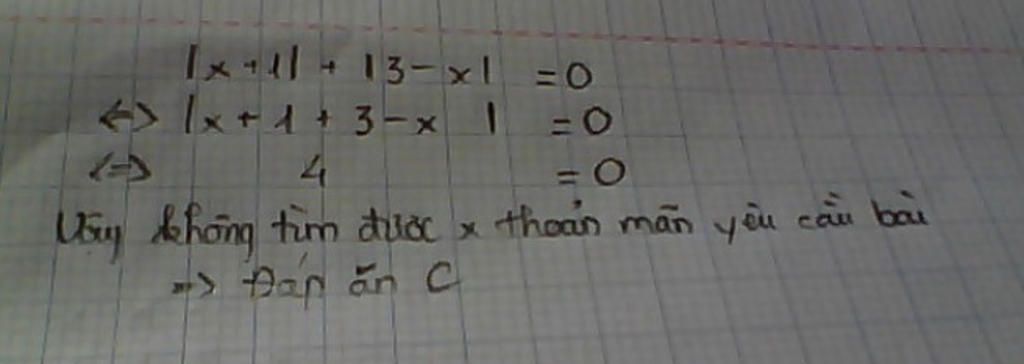 |x+1| + |3-x| = 0
<=> |x + 1 + 3 - x| = 0
<=> 4 = 0
Vậy không tìm được x thoản mãn yêu cầu bài
=> Đáp án C